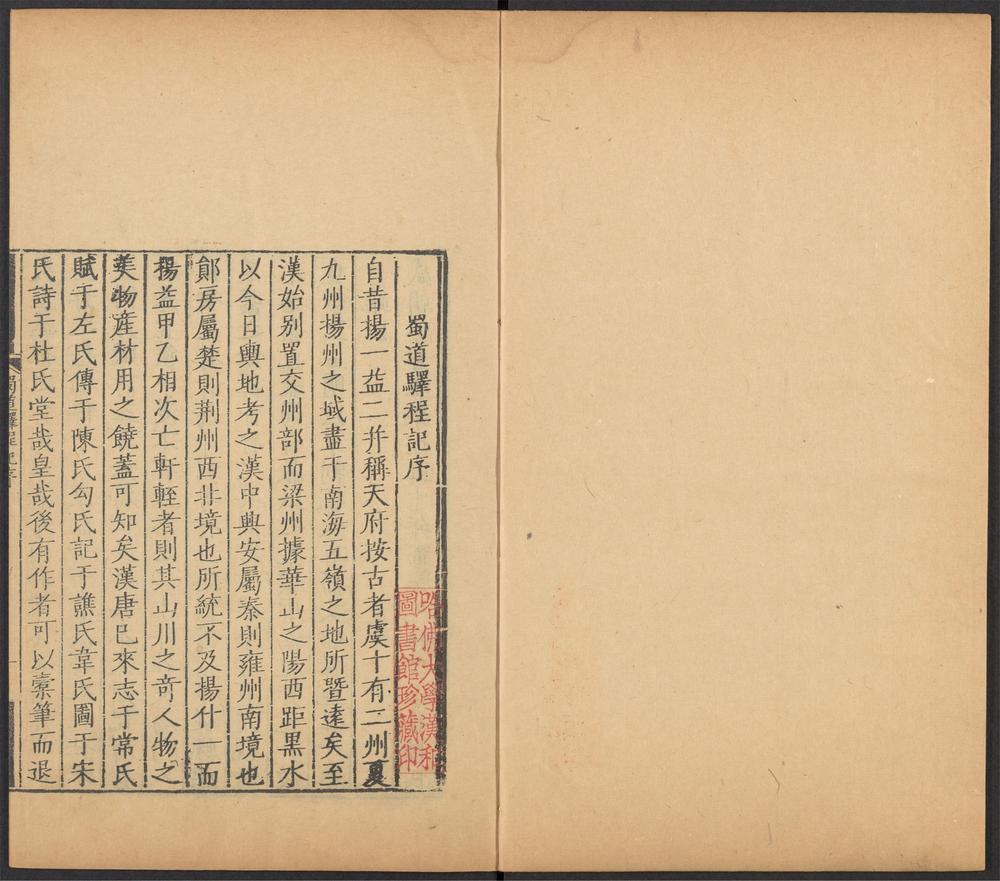 蜀道驛程記序
自昔揚一益二并稱天府按古者虞十有二州夏
九州揚州之域盡于南海五嶺之地所暨遠矣至
漢始別置交州部而梁州據華山之陽西距黑水
以今日輿地考之漢中興安屬秦則雍州南境也
鄖房屬楚則荆州西北境也所統不及揚什一而
揚益甲乙相次亡軒輊者則其山川之竒人物之
美物産材用之饒蓋可知矣漢唐已來志于常氏
賦于左氏傳于陳氏勾氏記于譙氏韋氏圖于宋
氏詩于杜氏堂哉皇哉後有作者可以橐筆而退
蜀道驛程記序
哈佛大學漢和
圖書館珍藏印